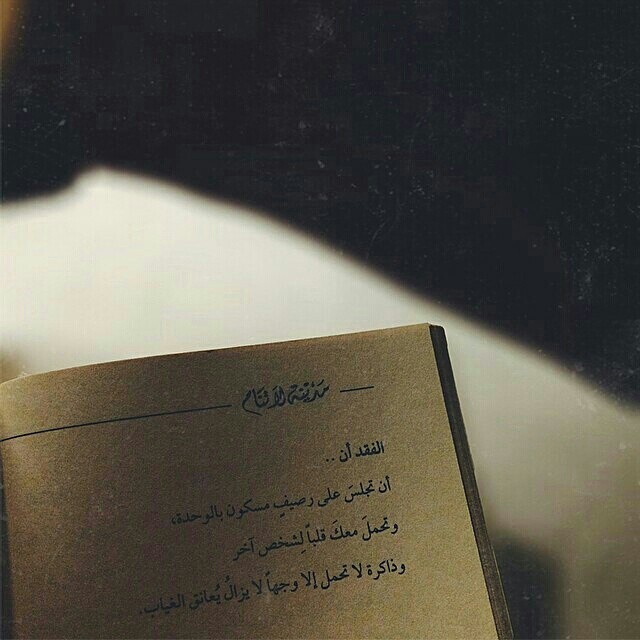 مدينة لا تنام
الفقد أن ..
أن تجلسَ على رصيفٍ مسكون بالوحدة،
وتحملَ معكَ قلباً لِشخص آخر
وذاكرة لا تحمل إلا وجهاً لا يزالُ يُعانق الغياب.